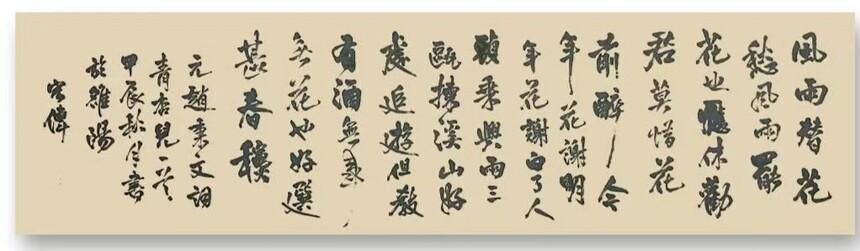 風雨替花
愁風雨罷
花也應休勸
君莫惜花
前醉今
年花謝明
年花謝白了人
頭乘興兩三
甌揀溪山好
處追遊但教
有酒無事
無花也好選
甚春穐
元趙秉文詞
青杏兒一首
甲辰秋月書
於雒陽